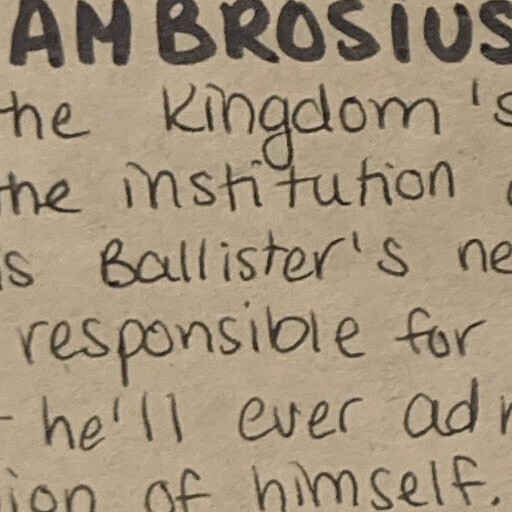 AMBROSIUS
the Kingdom's
the institution
is Ballister's ne
responsible for
- he'll ever ad
ion of himself.